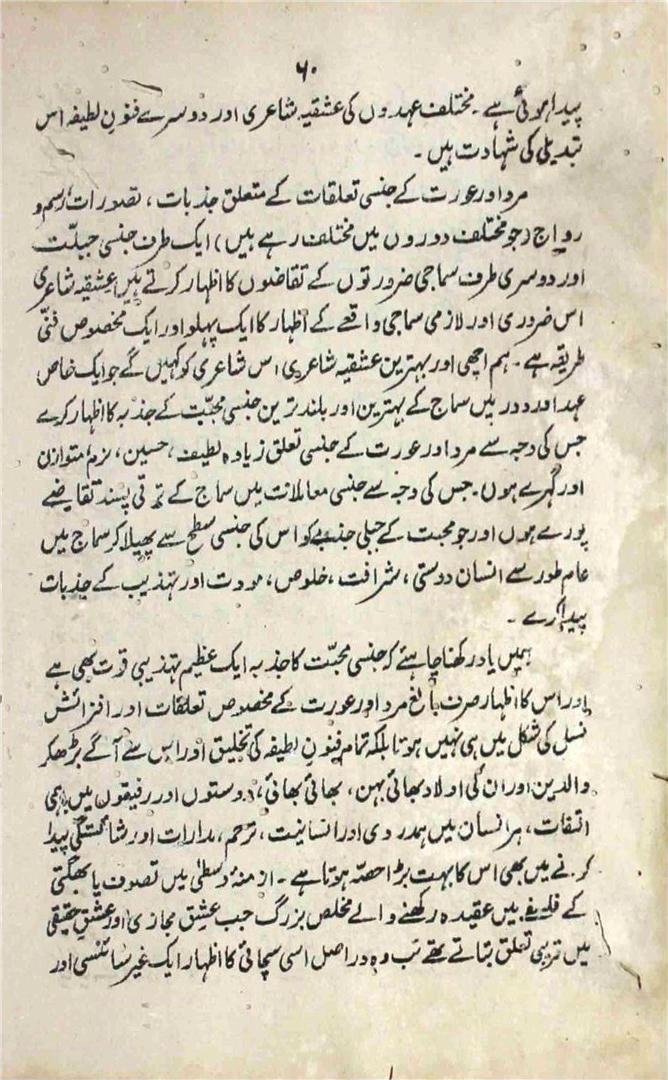 ۶۰
پیدا ہوئی ہے۔ مختلف عہدوں کی عشقیہ شاعری اور دوسرے فنونِ لطیفہ اس
تبدیلی کی شہادت ہیں۔
مرد اور عورت کے جنسی تعلقات کے متعلق جذبات، تصورات، رسم و
رواج (جو مختلف دوروں میں مختلف رہے ہیں) ایک طرف جنسی جبلّت
اور دوسری طرف سماجی ضرورتوں کے تقاضوں کا اظہار کرتے ہیں عشقیہ شاعری
اس ضروری اور لازمی سماجی واقعے کے اظہار کا ایک پہلو اور ایک مخصوص فنّی
طریقہ ہے۔ ہم اچھی اور بہترین عشقیہ شاعری اس شاعری کو کہیں گے جو ایک خاص
عہد اور دور میں سماج کے بہترین اور بلند ترین جنسی محبّت کے جذبہ کا اظہار کرے
جس کی وجہ سے مرد اور عورت کے جنسی تعلق زیادہ لطیف، حسین، نرم، متوازن
اور گہرے ہوں۔ جس کی وجہ سے جنسی معاملات میں سماج کے ترقی پسند تقاضے
پورے ہوں اور جو محبت کے جبلی جذبے کو اس کی جنسی سطح سے پھیلا کر سماج میں
عام طور سے انسان دوستی، شرافت، خلوص، مودت اور تہذیب کے جذبات
پیدا کرے۔
ہمیں یاد رکھنا چاہئے کہ جنسی محبّت کا جذبہ ایک عظیم تہذیبی قوت بھی ہے
اور اس کا اظہار صرف بالغ مرد اور عورت کے مخصوص تعلقات اور افزائش
نسل کی شکل میں ہی نہیں ہوتا بلکہ تمام فنونِ لطیفہ کی تخلیق اور اس سے آگے بڑھ کر
والدین اور ان کی اولاد بھائی بہن، بھائی بھائی، دوستوں اور رفیقوں میں باہمی
التفات، ہر انسان میں ہمدردی اور انسانیت، ترحم، مدارات اور شائستگی پیدا
کرنے میں بھی اس کا بہت بڑا حصّہ ہوتا ہے۔ ازمنۂ وسطیٰ میں تصوف یا بھگتی
کے فلسفے میں عقیدہ رکھنے والے مخلص بزرگ جب عشقِ مجازی اور عشقِ حقیقی
میں قریبی تعلق بتاتے تھے تب وہ دراصل اسی سچائی کا اظہار ایک غیر سائنسی اور